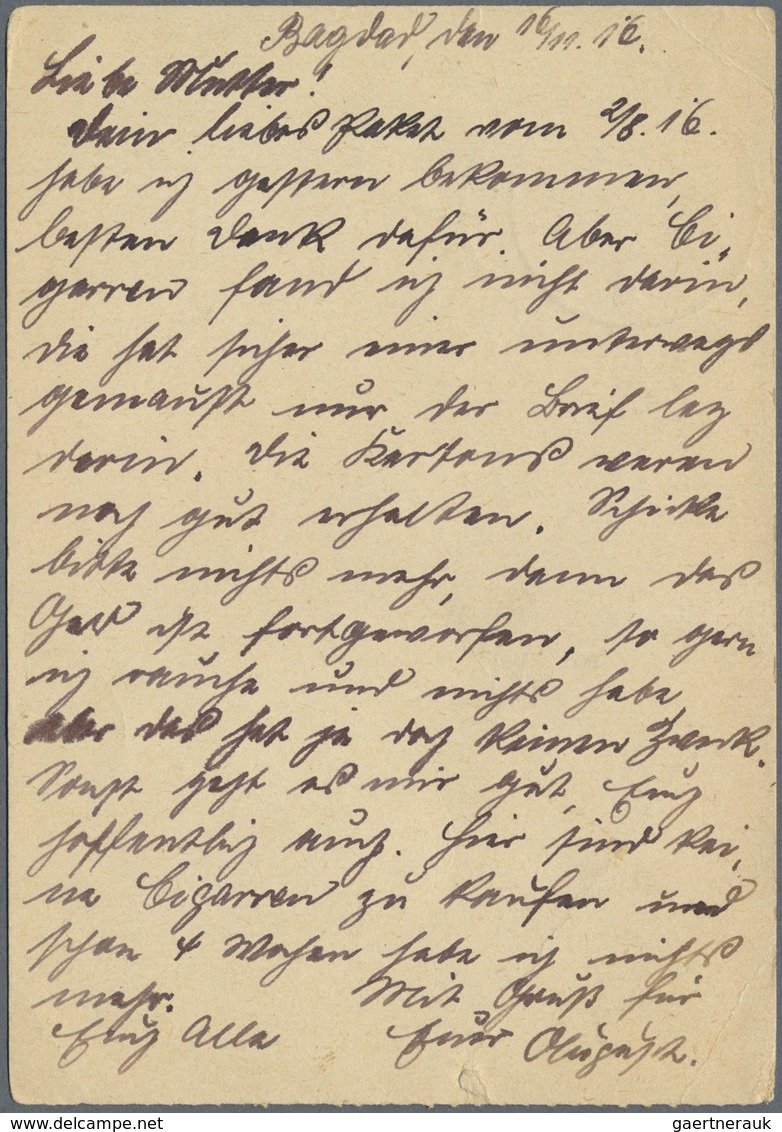 Bagdad, den 16/11.16.
Liebe Mutter!
Dein liebes Paket vom 2/8.16.
habe ich gestern bekommen,
besten Dank dafür. Aber Ci-
garren fand ich nicht darin,
die hat sicher einer unterwegs
gemaust nur der Brief lag
darin. Die Kartons waren
noch gut erhalten. Schicke
bitte nichts mehr, denn das
Geld ist fortgeworfen, so gern
ich rauche und nichts habe
aber das hat ja doch keinen Zweck.
Sonst geht es mir gut, Euch
hoffentlich auch. Hier sind kei-
ne Cigarren zu kaufen und
schon 4 Wochen habe ich nichts
mehr. Mit Gruß für
Euch Alle Euer August.
delcampe.net
gaertnerauk